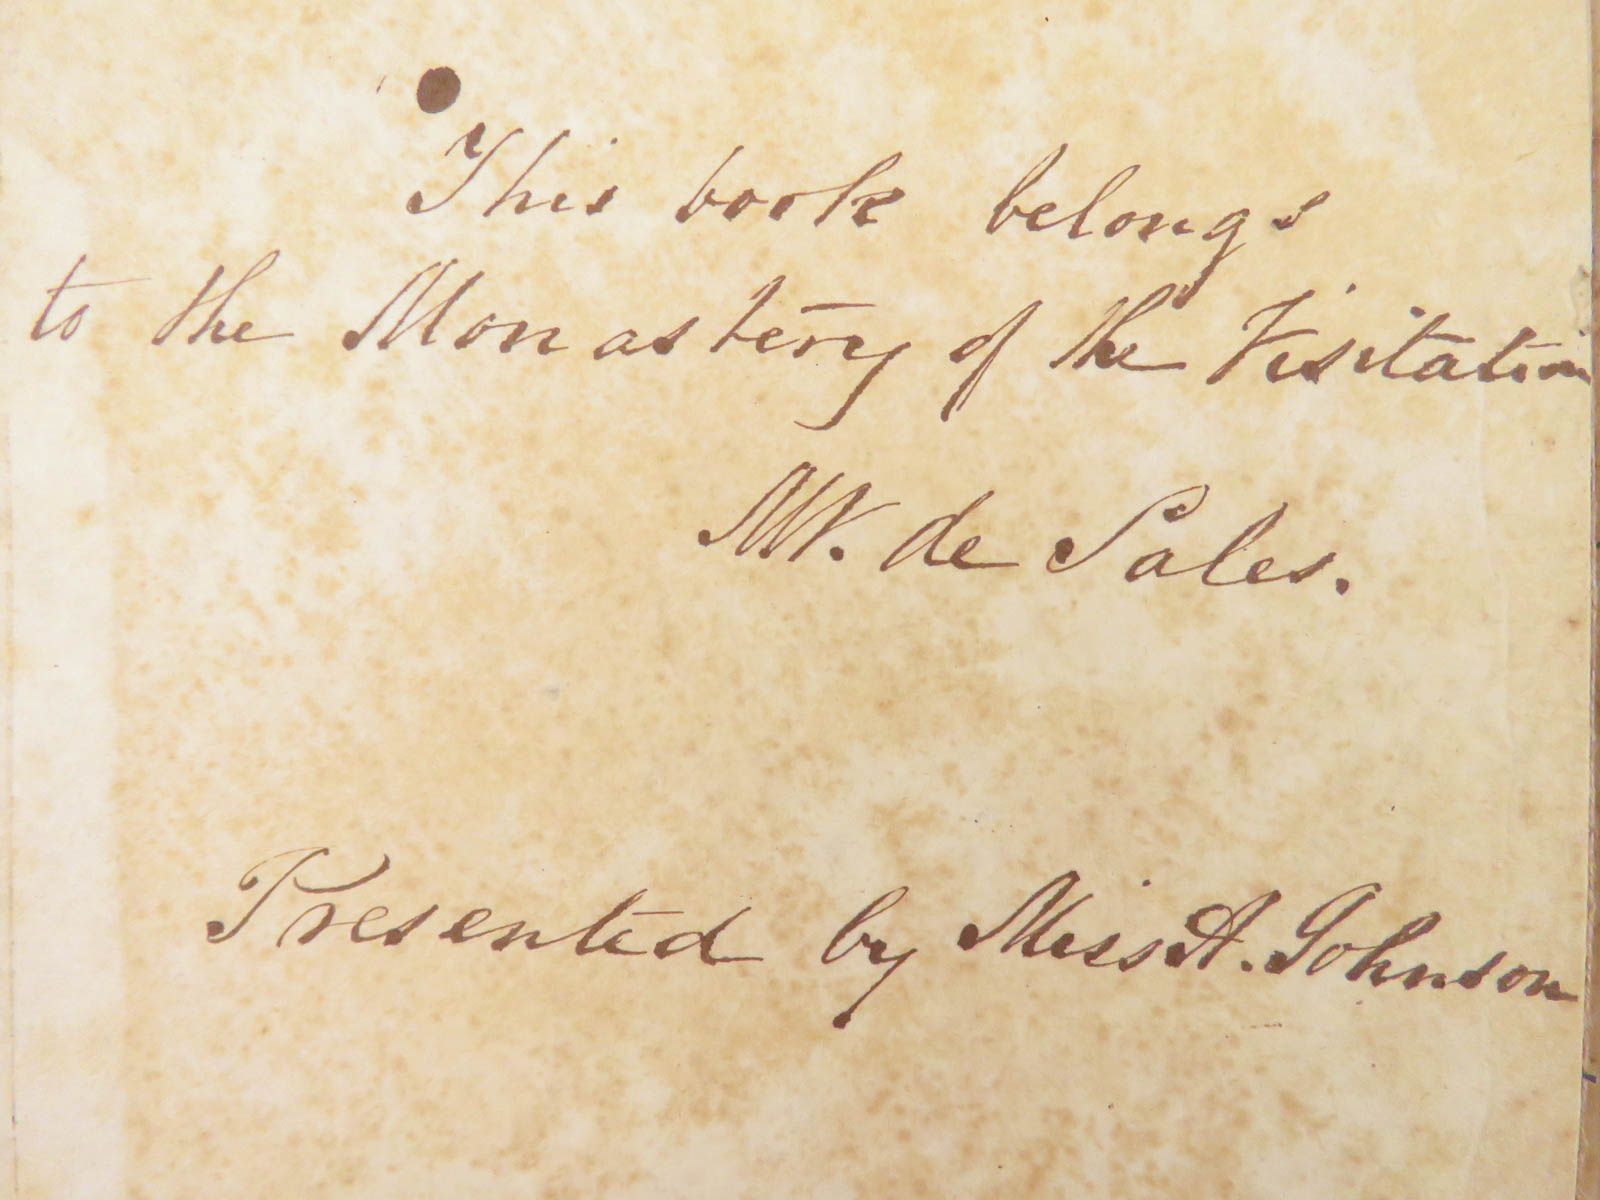 This book belongs
to the Monastery of the Visitation
Mt. de Sales.
Presented by Miss A. Johnson